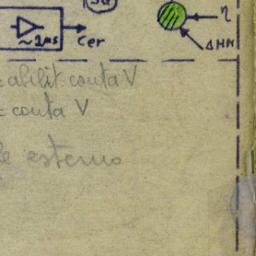 SG
η
~1μs
Cer
ΔHH
abilit conta V
= conta V
le esterno